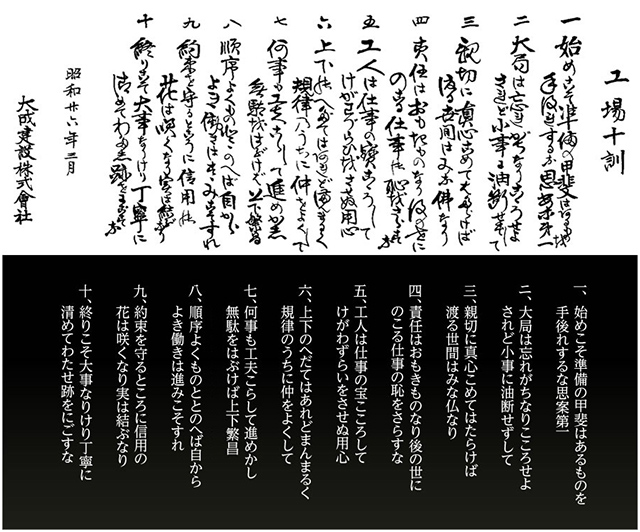 工場十訓
一 始めこそ準備の甲斐はあるものを
手後れするな思案第一
二 大局は忘れがちなりこころせよ
されど小事に油断せずして
三 親切に真心こめてはたらけば
渡る世間はみな佛なり
四 責任はおもきものなり後の世に
のこる仕事の恥をさらすな
五 工人は仕事の宝こころして
けがわずらひをさせぬ用心
六 上下のへだてはあれどまんまるく
規律のうちに仲をよくして
七 何事も工夫こらして進めかし
無駄をはぶけば上下繁昌
八 順序よくものととのへば自から
よき働きは進みこそすれ
九 約束を守るところに信用の
花は咲くなり実は結ぶなり
十 終りこそ大事なりけり丁寧に
清めてわたせ跡をにごすな
昭和廿六年三月
大成建設株式會社
一、始めこそ準備の甲斐はあるものを
手後れするな思案第一
二、大局は忘れがちなりこころせよ
されど小事に油断せずして
三、親切に真心こめてはたらけば
渡る世間はみな仏なり
四、責任はおもきものなり後の世に
のこる仕事の恥をさらすな
五、工人は仕事の宝こころして
けがわずらいをさせぬ用心
六、上下のへだてはあれどまんまるく
規律のうちに仲をよくして
七、何事も工夫こらして進めかし
無駄をはぶけば上下繁昌
八、順序よくものととのへば自から
よき働きは進みこそすれ
九、約束を守るところに信用の
花は咲くなり実は結ぶなり
十、終りこそ大事なりけり丁寧に
清めてわたせ跡をにごすな